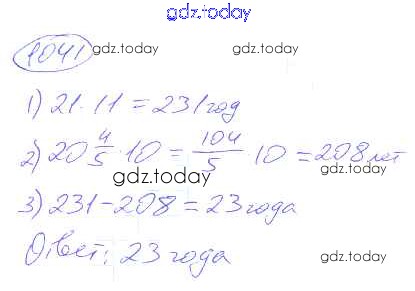 gdz.today
1041
gdz.today
gdz.today
1) 21 · 11 = 231 год
2) 20 4/5 · 10 = 104/5 · 10 = 208 лет
gdz.today
gdz.today
3) 231 - 208 = 23 года
Ответ: 23 года
gdz.today